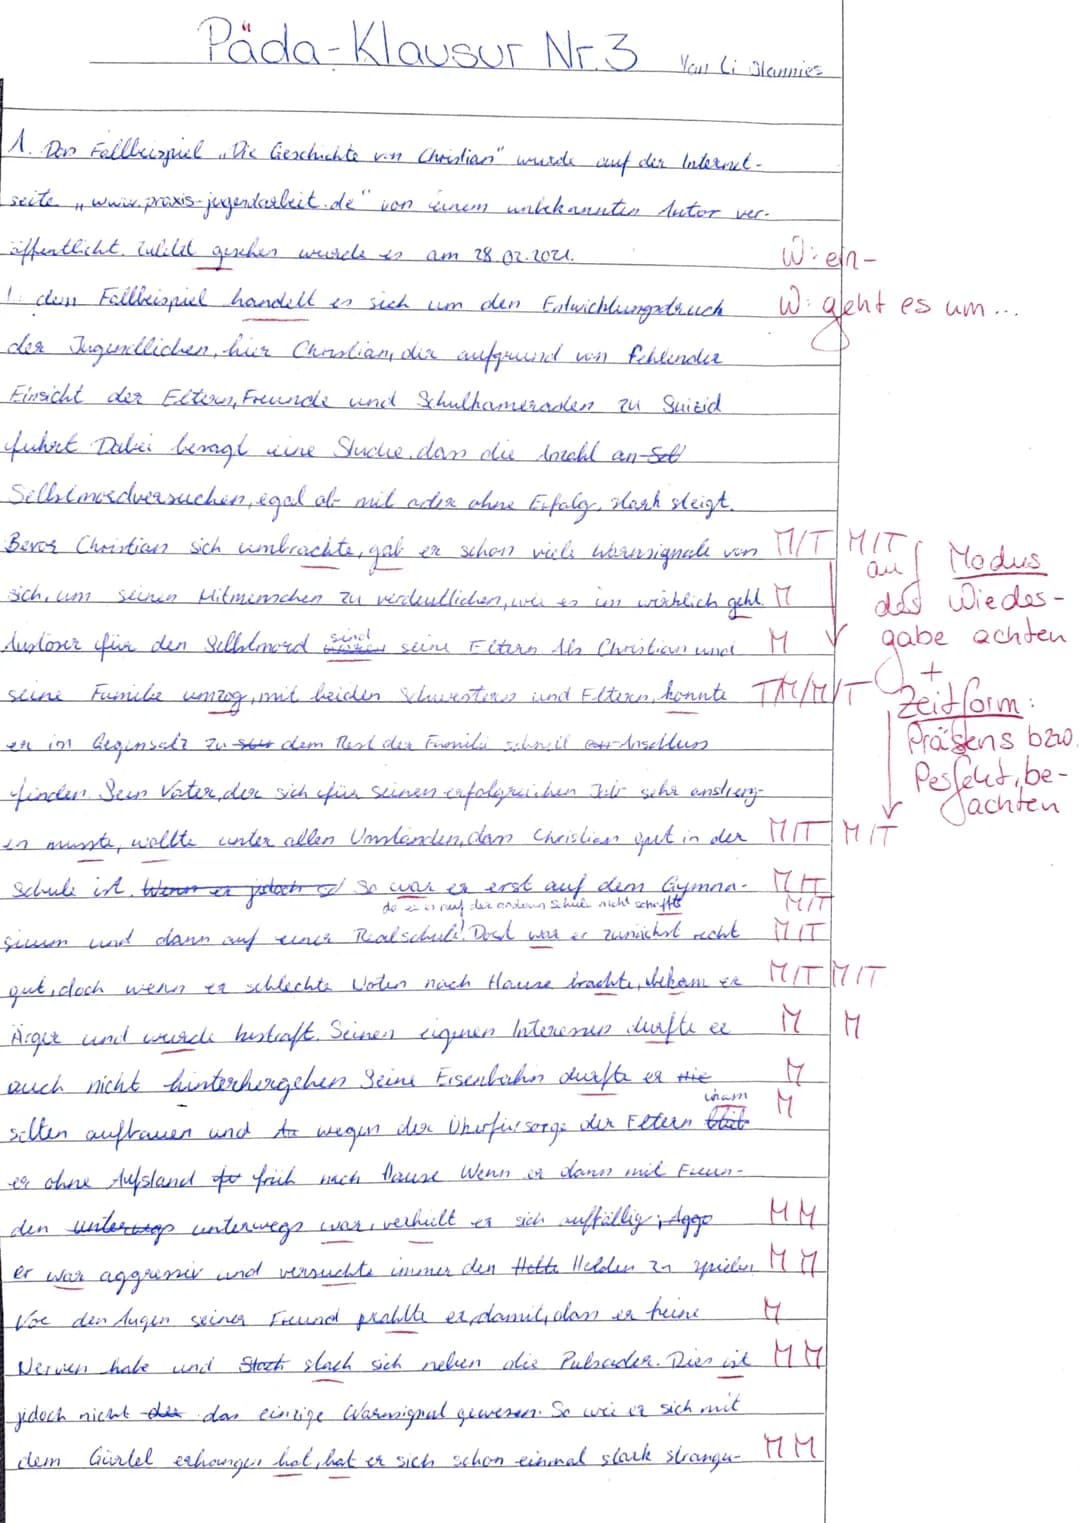 Päda-Klausur Nr. 3 Von Li
1. Das Fallbeispiel „Die Geschichte von Christian" wurde auf der Internet-
seite „www.praxis-jugendarbeit.de" von einem unbekannten Autor ver-
öffentlicht. Zuletzt gesehen wurde es am 28.02.2021. W: ein-
dem Fallbeispiel handelt es sich um den Entwicklungsdruck W: geht es um...
der Jugendlichen, hier Christian, der aufgrund von fehlender
Einsicht der Eltern, Freunde und Schulkameraden zu Suizid
führt. Dabei besagt eine Studie, dass die Anzahl an Sel
Selbstmordversuchen, egal ob mit oder ohne Erfolg, stark steigt.
Bevor Christian sich umbrachte, gab er schon viele Warnsignale von M/T M/T
sich, um seinen Mitmenschen zu verdeutlichen, wie es im wirklich geht. M
Auslöser für den Selbstmord sind seine Eltern. Als Christian und M
seine Familie umzog, mit beiden Schwestern und Eltern, konnte TM/M/T
er im Gegensatz zu dem Rest der Familie schnell Anschluss
finden. Sein Vater, der sich für seinen erfolgreichen Job sehr anstreng-
en musste, wollte unter allen Umständen, dass Christian gut in der M/T M/T
Schule ist. Wenn er jedoch So war er erst auf dem Gymna- M/T
da er es auf der anderen Schule nicht schaffte M/T
sium und dann auf einer Realschule. Dort war er zunächst recht M/T
gut, doch wenn er schlechte Noten nach Hause brachte, bekam er M/T M/T
Ärger und wurde bestraft. Seinen eigenen Interessen durfte er M M
auch nicht hinterhergehen. Seine Eisenbahn durfte er nie M
selten aufbauen und wegen der Überfürsorge der Eltern kam M
er ohne Aufstand früh nach Hause. Wenn er dann mit Freun-
den unterwegs unterwegs war, verhielt er sich auffällig; Aggo M M
er war aggressiv und versuchte immer den Helde Helden zu spielen. M M
Vor den Augen seiner Freund prahlte er, damit, dass er keine M
Nerven habe und Stach stach sich neben die Pulsader. Dies ist M M
jedoch nicht der das einzige Warnsignal gewesen. So wie er sich mit
dem Gürtel erhangen hat, hat er sich schon einmal stark strangu- M M
au Modus
das Wieder-
gabe achten
+
Zeitform:
Präsens bzw.
Perfekt, be-
achten